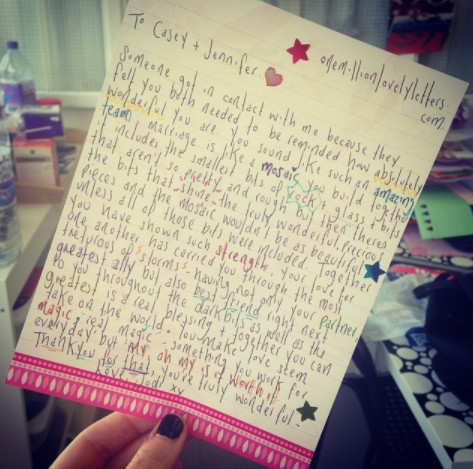 To Casey + Jennifer.
onemillionlovelyletters.
com.
Someone got in contact with me because they
felt you both needed to be reminded how absolutely
wonderful you are. you sound like such an amazing
team. Marriage is like a mosaic, you build together
it includes the smallest bits of rock + glass, bits
that aren't so pretty and rough but then theres
the bits that shine, the truly wonderful, precious
pieces and the mosaic wouldn't be as beautiful
unless all of those bits were included. Together
you have shown such strength, your love for
one another has carried you through the most
treturous of storms, having not only your partner,
greatest ally but also best friend right next
to you throughout the dark bits as well as the
greatest is a real blessing + together you can
take on the world. You make love seem
magic, real magic, something you work for
everyday but my oh my is it worth it!
Thank you for that, you're truly wonderful.
Love Jodi xx